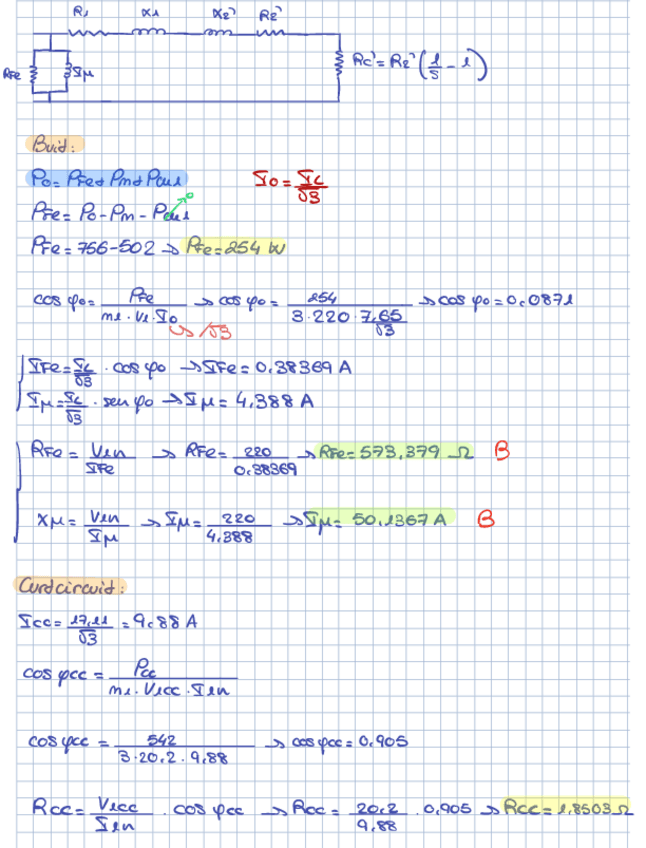 R₁ X₁ X₂' R₂'
RFe Iμ Rc' = R₂' (1/s - 1)
Buid:
Po = PFe + Pm + Pcu1 Io = IL/√3
PFe = Po - Pm - Pcu1 → 0
PFe = 756 - 502 → PFe = 254 W
cos φo = PFe / (m1 · V1 · Io) → cos φo = 254 / (3 · 220 · 7,65/√3) → cos φo = 0,0871
↳ /√3
IFe = IL/√3 · cos φo → IFe = 0,38369 A
Iμ = IL/√3 · sen φo → Iμ = 4,388 A
RFe = V1n / IFe → RFe = 220 / 0,38369 → RFe = 573,379 Ω B
Xμ = V1n / Iμ → Iμ = 220 / 4,388 → Iμ = 50,1367 A B
Curtcircuid:
Icc = 17,11/√3 = 9,88 A
cos φcc = Pcc / (m1 · V1cc · I1n)
cos φcc = 542 / (3 · 20,2 · 9,88) → cos φcc = 0,905
Rcc = V1cc / I1n · cos φcc → Rcc = 20,2 / 9,88 · 0,905 → Rcc = 1,8503 Ω